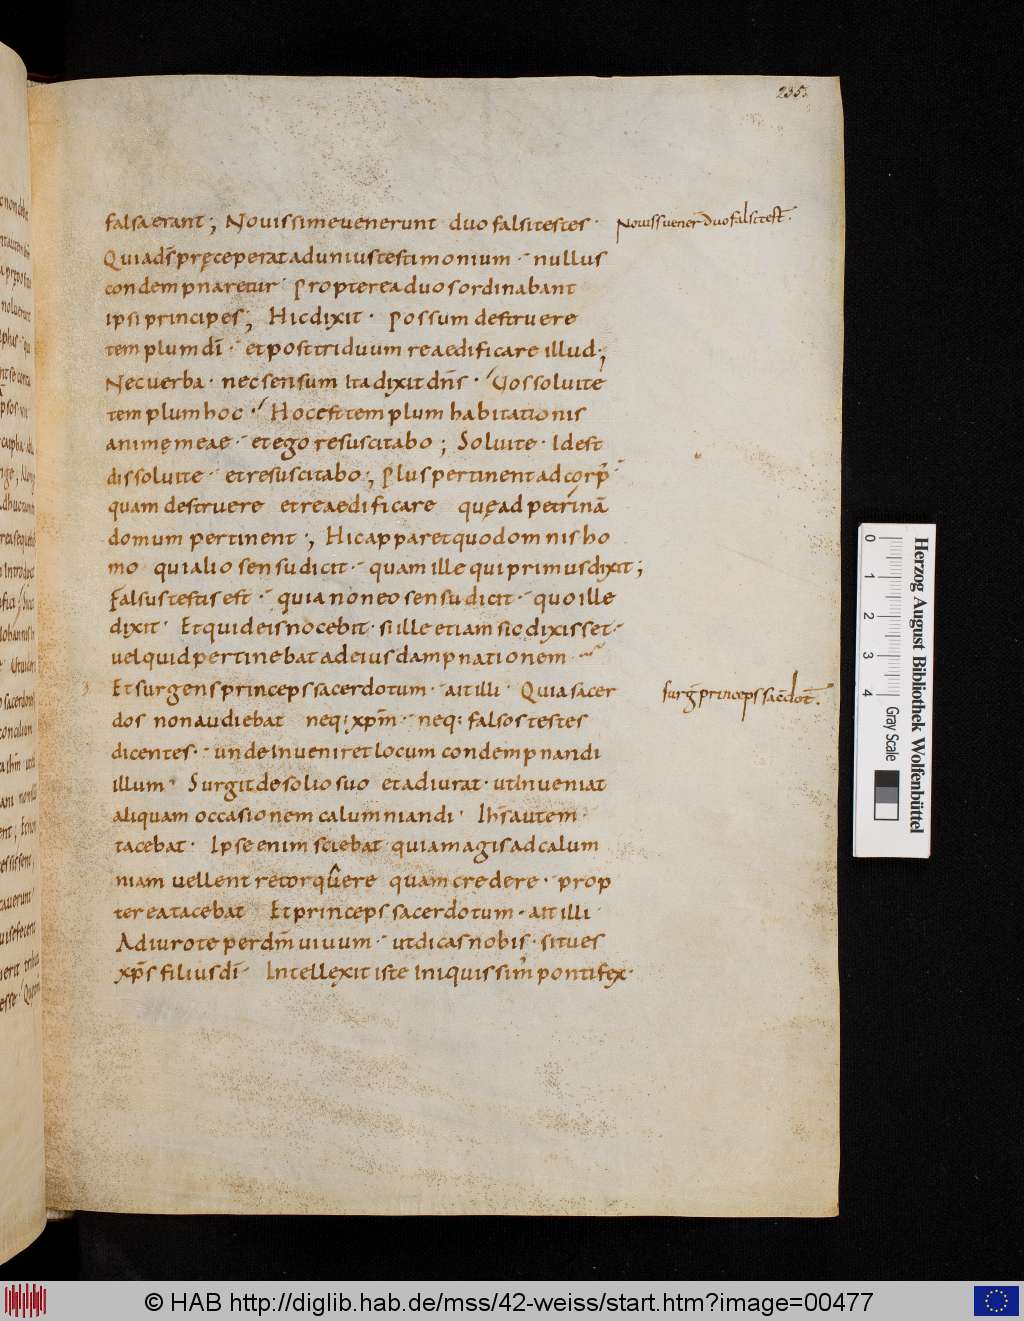 235.
falsa erant; Nouissime uenerunt duo falsi testes. Nouiss uener̄ duo falsi test̄.
Quia ds̄ pręceperat ad unius testimonium. nullus
condempnaretur. Propterea duos ordinabant
ipsi principes; Hic dixit. Possum destruere
templum dī. et post triduum reaedificare illud.;
Nec uerba. nec sensum Ita dixit dn̄s. Uos soluite
templum hoc. Hoc est templum habitationis
animę meae. et ego resuscitabo; Soluite. Id est
dissoluite. et resuscitabo; Plus pertinent ad corp̄.
quam destruere et reaedificare quę ad petrinā
domum pertinent; Hic apparet quod omnis ho
mo qui alio sensu dicit. quam ille qui primus dixit;
falsus testis est. quia non eo sensu dicit. quo ille
dixit. Et quid eis nocebit. si ille etiam sic dixisset.
uel quid pertinebat ad eius dampnationem.
Et surgens princeps sacerdotum. ait illi. Quia sacer surḡ princeps sacēdot̄.
dos non audiebat neq; xp̄m. neq; falsos testes
dicentes. unde Inueniret locum condempnandi
illum. Surgit de solio suo et adiurat. ut Inueniat
aliquam occasionem calumniandi. Ihs̄ autem
tacebat. Ipse enim sciebat quia magis ad calum
niam uellent retorquere quam credere. prop
terea tacebat Et princeps sacerdotum. ait illi
Adiuro te per dm̄ uiuum. ut dicas nobis. si tu es
xp̄s filius dī. Intellexit iste Iniquissim' pontifex.
0 1 2 3 4
Gray Scale
Herzog August Bibliothek Wolfenbüttel
© HAB http://diglib.hab.de/mss/42-weiss/start.htm?image=00477